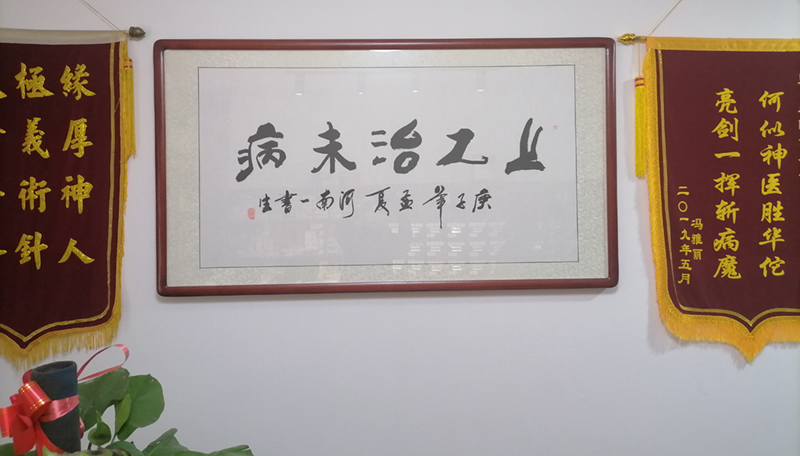 上工治未病
庚子年孟夏河南一書生
緣厚神人
極義術針
何似神医胜华佗
亮剑一挥斩病魔
冯雅丽
二〇一九年五月